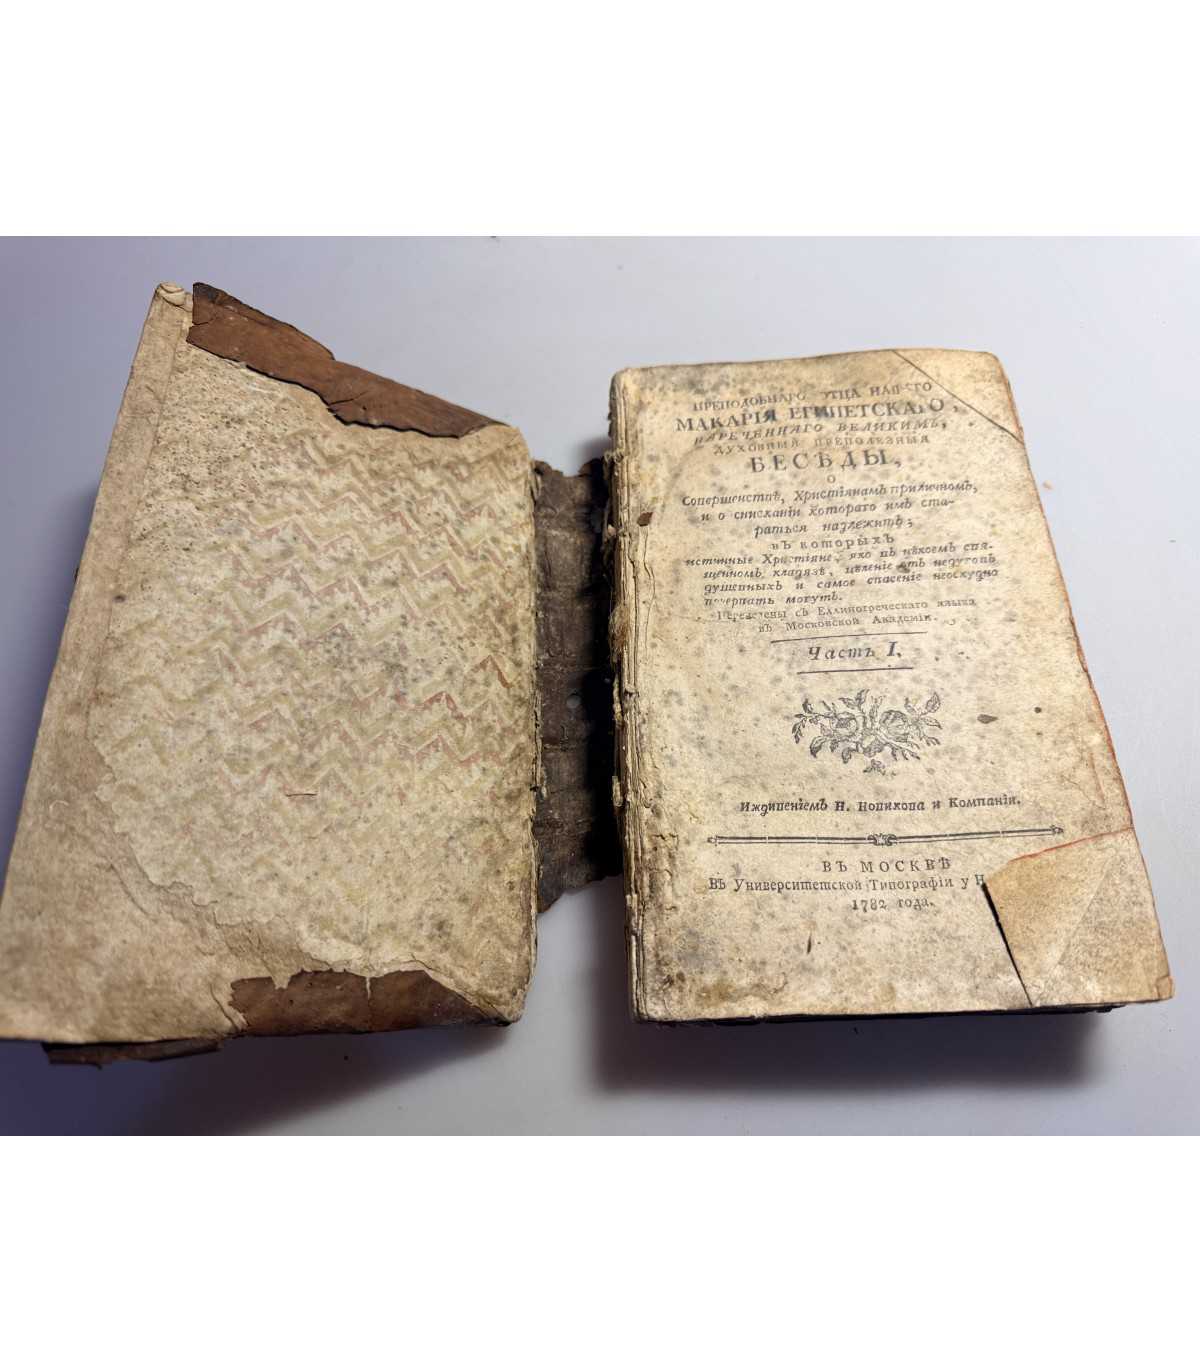 ПРЕПОДОБНАГО ОТЦА НАШЕГО
МАКАРІЯ ЕГИПЕТСКАГО,
НАРЕЧЕННАГО ВЕЛИКИМЪ,
ДУХОВНЫЯ ПРЕПОЛЕЗНЫЯ
БЕСѢДЫ,
О
Совершенствѣ, Христіянамъ приличномъ,
и о снисканіи котораго имъ ста-
раться надлежитъ;
въ которыхъ
истинные Христіяне, яко въ нѣкоемъ свя-
щенномъ кладязѣ, цѣленіе отъ недуговъ
душевныхъ и самое спасеніе неоскудно
почерпать могутъ.
Переведены съ Еллиногреческаго языка
въ Московской Академіи.
Часть I.
Иждивеніемъ Н. Новикова и Компаніи.
ВЪ МОСКВѢ
Въ Университетской Типографіи у Н
1782 года.